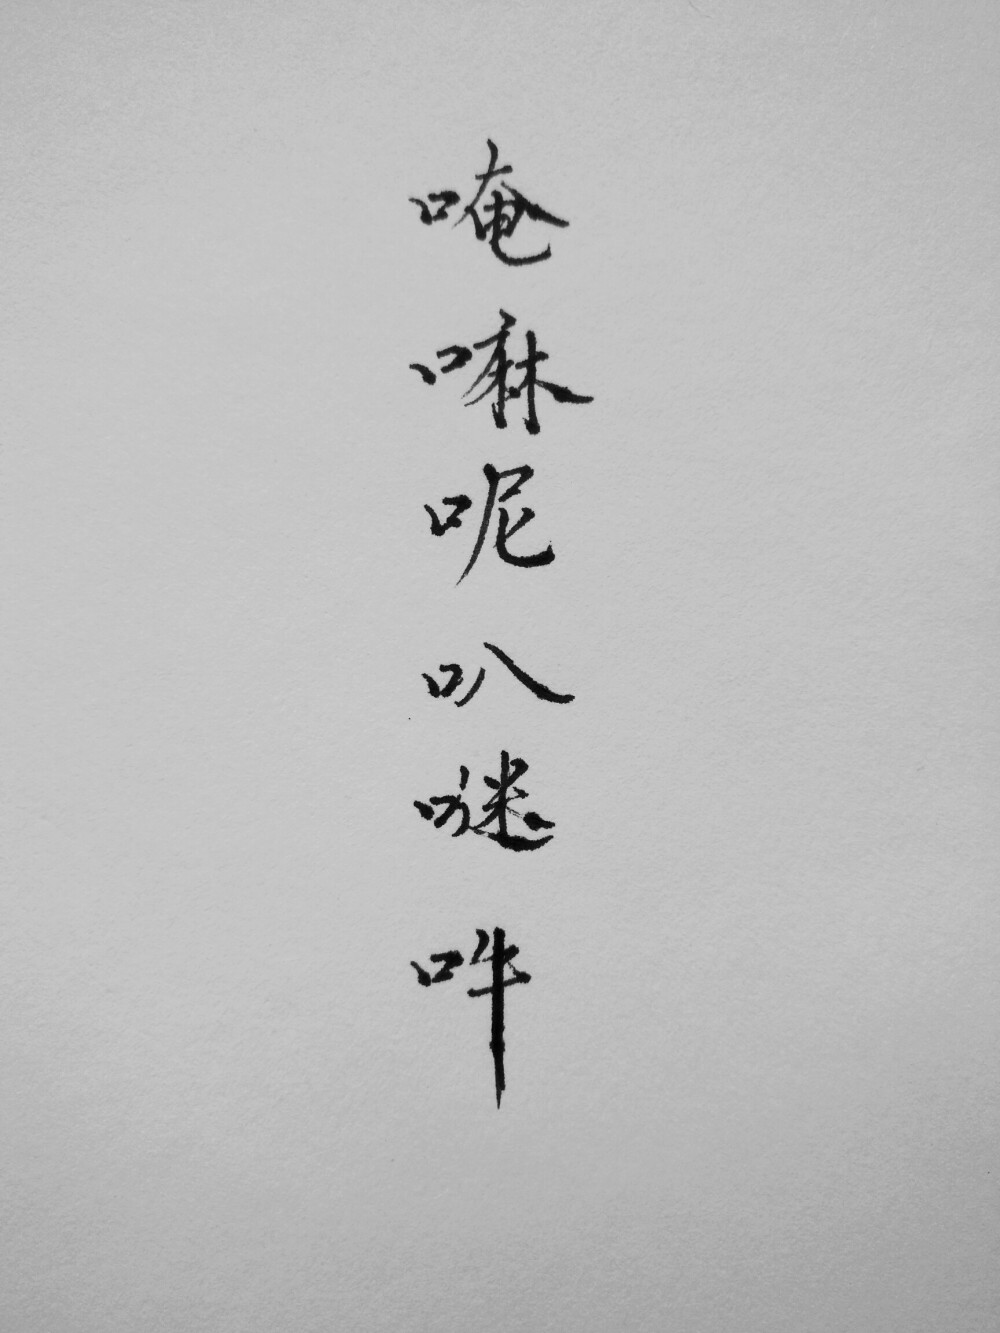 唵嘛呢叭㘥吽